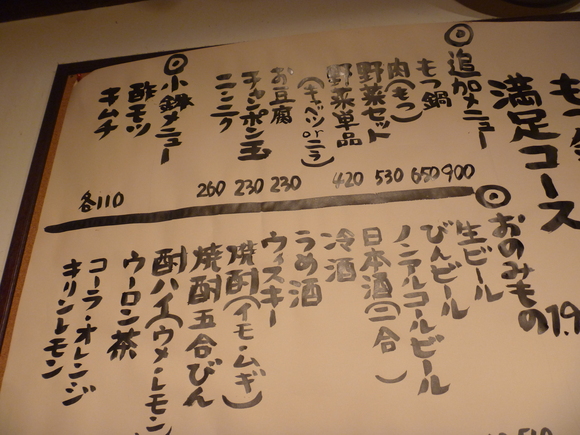 満足コース
1.9
◎追加メニュー
もつ鍋 900
肉(もつ) 650
野菜セット 530
野菜単品 420
(キャベツorニラ)
お豆腐 230
チャンポン玉 230
ニンニク 260
◎小鉢メニュー
酢モツ
キムチ
各110
◎おのみもの
生ビール
びんビール
ノンアルコールビール
日本酒(二合)
冷酒
うめ酒
ウィスキー
焼酎(イモ・ムギ)
焼酎五合びん
酎ハイ(ウメ・レモン)
ウーロン茶
コーラ・オレンジ
キリンレモン